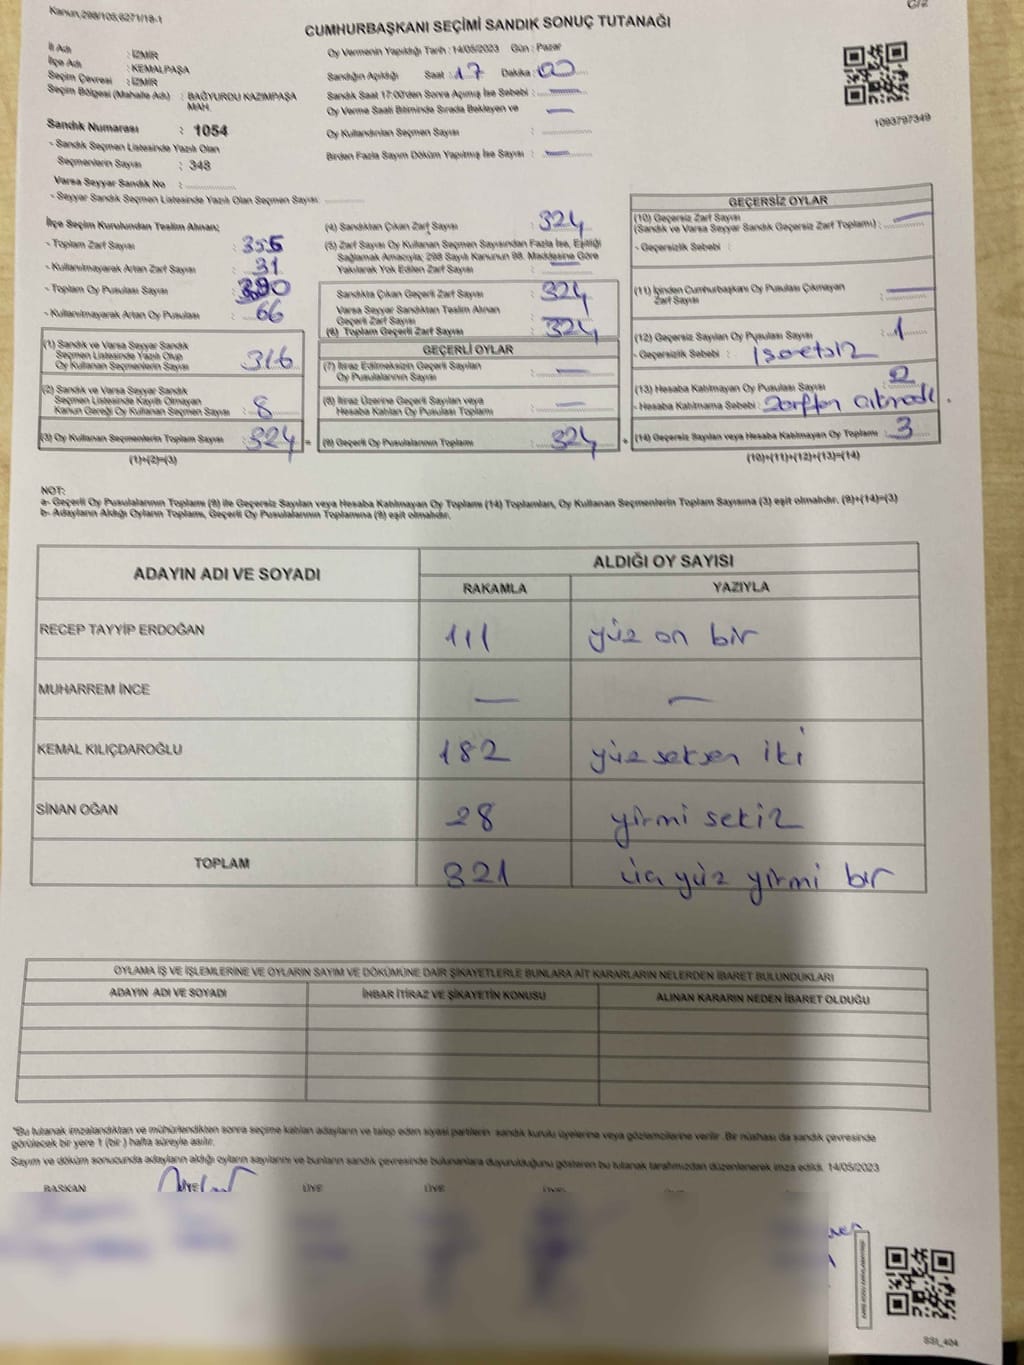 Kanun,298/105,6271/18-1
C/2
CUMHURBAŞKANI SEÇİMİ SANDIK SONUÇ TUTANAĞI
İl Adı : İZMİR
İlçe Adı : KEMALPAŞA
Seçim Çevresi : İZMİR
Seçim Bölgesi (Mahalle Adı) : BAĞYURDU KAZIMPAŞA MAH.
Sandık Numarası : 1054
- Sandık Seçmen Listesinde Yazılı Olan
Seçmenlerin Sayısı : 348
Varsa Seyyar Sandık No :
- Seyyar Sandık Seçmen Listesinde Yazılı Olan Seçmen Sayısı
Oy Vermenin Yapıldığı Tarih : 14/05/2023 Gün : Pazar
Sandığın Açıldığı Saat : 17 Dakika : 00
Sandık Saat 17:00'den Sonra Açılmış İse Sebebi : —
Oy Verme Saati Bitiminde Sırada Bekleyen ve —
Oy Kullandırılan Seçmen Sayısı :
Birden Fazla Sayım Döküm Yapılmış İse Sayısı : —
1093797349
İlçe Seçim Kurulundan Teslim Alınan;
- Toplam Zarf Sayısı :
- Kullanılmayarak Artan Zarf Sayısı : 31
- Toplam Oy Pusulası Sayısı :
- Kullanılmayarak Artan Oy Pusulası : 66
(1) Sandık ve Varsa Seyyar Sandık
Seçmen Listesinde Yazılı Olup
Oy Kullanan Seçmenlerin Sayısı : 316
(2) Sandık ve Varsa Seyyar Sandık
Seçmen Listesinde Kayıtlı Olmayan
Kanun Gereği Oy Kullanan Seçmen Sayısı : 8
(3) Oy Kullanan Seçmenlerin Toplam Sayısı : 324 =
(1)+(2)=(3)
(4) Sandıktan Çıkan Zarf Sayısı : 324
(5) Zarf Sayısı Oy Kullanan Seçmen Sayısından Fazla İse, Eşitliği
Sağlamak Amacıyla; 298 Sayılı Kanunun 98. Maddesine Göre
Yakılarak Yok Edilen Zarf Sayısı : —
Sandıkta Çıkan Geçerli Zarf Sayısı : 324
Varsa Seyyar Sandıktan Teslim Alınan
Geçerli Zarf Sayısı : —
(6) Toplam Geçerli Zarf Sayısı : 324
GEÇERLİ OYLAR
(7) İtiraz Edilmeksizin Geçerli Sayılan
Oy Pusulalarının Sayısı : —
(8) İtiraz Üzerine Geçerli Sayılan veya
Hesaba Katılan Oy Pusulası Toplamı : —
(9) Geçerli Oy Pusulalarının Toplamı : 324 +
GEÇERSİZ OYLAR
(10) Geçersiz Zarf Sayısı
(Sandık ve Varsa Seyyar Sandık Geçersiz Zarf Toplamı) : —
- Geçersizlik Sebebi :
(11) İçinden Cumhurbaşkanı Oy Pusulası Çıkmayan
Zarf Sayısı : —
(12) Geçersiz Sayılan Oy Pusulası Sayısı : 1
- Geçersizlik Sebebi : İşaretsiz
(13) Hesaba Katılmayan Oy Pusulası Sayısı : 2
- Hesaba Katılmama Sebebi : Zarftan çıkmadı.
(14) Geçersiz Sayılan veya Hesaba Katılmayan Oy Toplamı : 3
(10)+(11)+(12)+(13)=(14)
NOT:
a- Geçerli Oy Pusulalarının Toplamı (9) ile Geçersiz Sayılan veya Hesaba Katılmayan Oy Toplamı (14) Toplamları, Oy Kullanan Seçmenlerin Toplam Sayısına (3) eşit olmalıdır. (9)+(14)=(3)
b- Adayların Aldığı Oyların Toplamı, Geçerli Oy Pusulalarının Toplamına (9) eşit olmalıdır.
ADAYIN ADI VE SOYADI ALDIĞI OY SAYISI
RAKAMLA YAZIYLA
RECEP TAYYİP ERDOĞAN 111 yüz on bir
MUHARREM İNCE — —
KEMAL KILIÇDAROĞLU 182 yüz seksen iki
SİNAN OĞAN 28 yirmi sekiz
TOPLAM 321 üç yüz yirmi bir
OYLAMA İŞ VE İŞLEMLERİNE VE OYLARIN SAYIM VE DÖKÜMÜNE DAİR ŞİKAYETLERLE BUNLARA AİT KARARLARIN NELERDEN İBARET BULUNDUKLARI
ADAYIN ADI VE SOYADI İHBAR İTİRAZ VE ŞİKAYETİN KONUSU ALINAN KARARIN NEDEN İBARET OLDUĞU
"Bu tutanak imzalandıktan ve mühürlendikten sonra seçime katılan adayların ve talep eden siyasi partilerin sandık kurulu üyelerine veya gözlemcilerine verilir. Bir nüshası da sandık çevresinde
görülecek bir yere 1 (bir ) hafta süreyle asılır.
Sayım ve döküm sonucunda adayların aldığı oyların sayılarını ve bunların sandık çevresinde bulunanlara duyurulduğunu gösteren bu tutanak tarafımızdan düzenlenerek imza edildi. 14/05/2023
BAŞKAN ÜYE ÜYE ÜYE
SS1_404